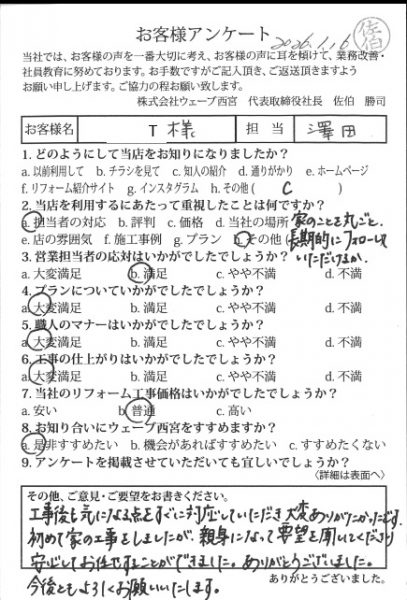 お客様アンケート
2026.1.16
佐伯
当社では、お客様の声を一番大切に考え、お客様の声に耳を傾けて、業務改善・
社員教育に努めております。お手数ですがご記入頂き、ご返送頂きますよう
お願い申し上げます。ご協力の程お願い致します。
株式会社ウェーブ西宮 代表取締役社長 佐伯 勝司
お客様名 T 様 担当 澤田
1. どのようにして当店をお知りになりましたか?
a. 以前利用して b. チラシを見て c. 知人の紹介 d. 通りがかり e. ホームページ
f. リフォーム紹介サイト g. インスタグラム h. その他( C )
2. 当店を利用するにあたって重視したことは何ですか?
a. 担当者の対応 b. 評判 c. 価格 d. 当社の場所
e. 店の雰囲気 f. 施工事例 g. プラン h. その他(家のことを丸ごと、
長期的にフォローして
いただけるか、
3. 営業担当者の応対はいかがでしたでしょうか?
a. 大変満足 b. 満足 c. やや不満 d. 不満
4. プランについていかがでしたでしょうか?
a. 大変満足 b. 満足 c. やや不満 d. 不満
5. 職人のマナーはいかがでしたでしょうか?
a. 大変満足 b. 満足 c. やや不満 d. 不満
6. 工事の仕上がりはいかがでしたでしょうか?
a. 大変満足 b. 満足 c. やや不満 d. 不満
7. 当社のリフォーム工事価格はいかがでしたでしょうか?
a. 安い b. 普通 c. 高い
8. お知り合いにウェーブ西宮をすすめますか?
a. 是非すすめたい b. 機会があればすすめたい c. すすめたくない
9. アンケートを掲載させていただいても宜しいでしょうか?
〈詳細は表面へ〉
その他、ご意見・ご要望をお書きください。
工事後も気になる点をすぐに対応していただき大変ありがたかったです。
初めて家の工事をしましたが、親身になって要望を聞いてくださり
安心してお任せすることができました。ありがとうございました。
今後ともよろしくお願いいたします。
ありがとうございました。